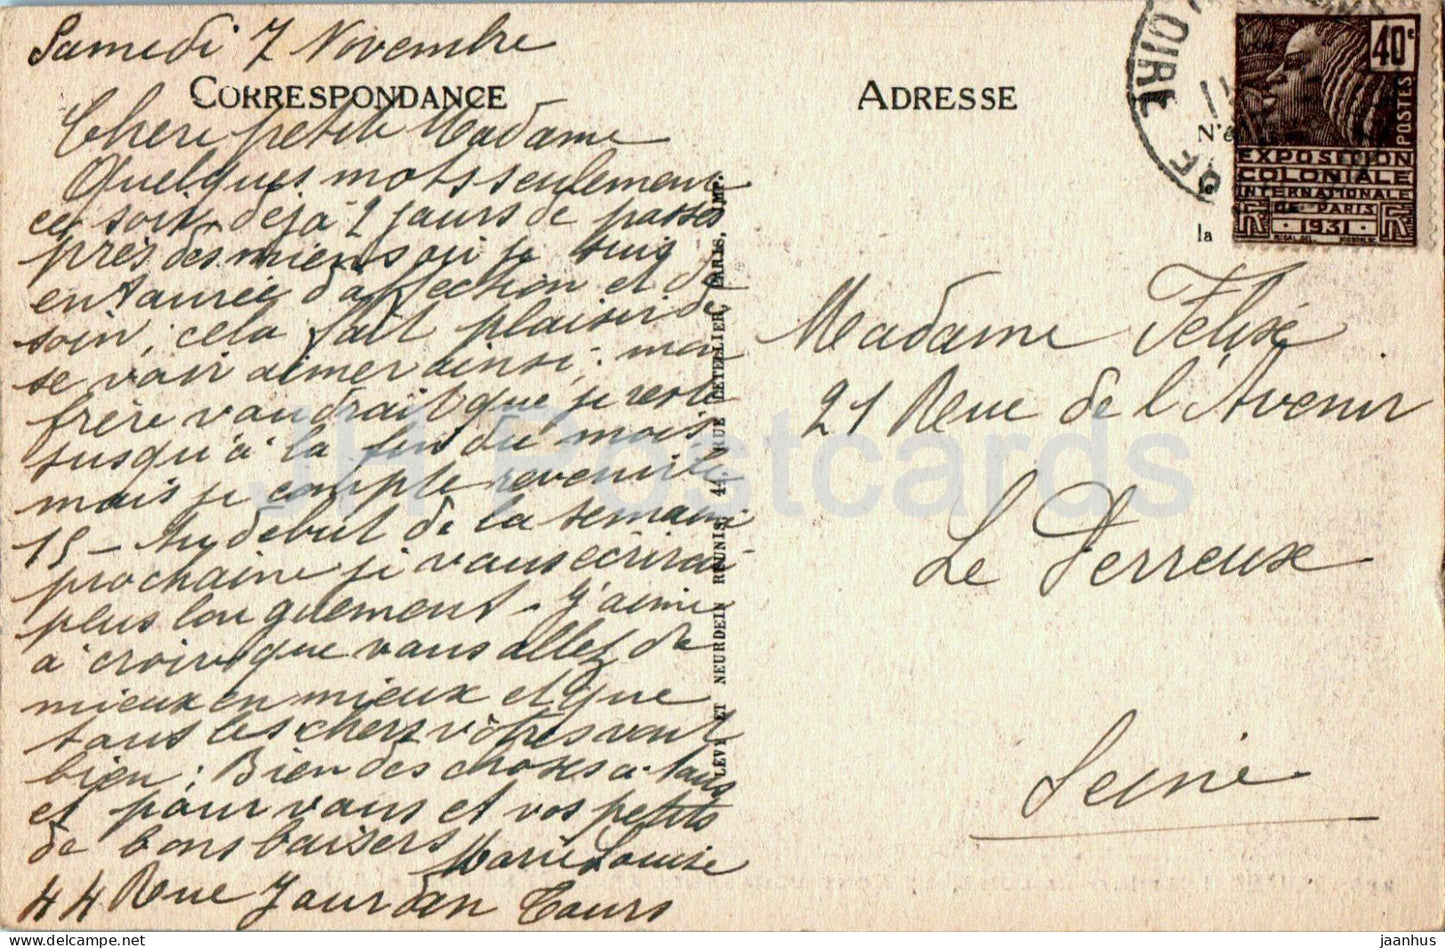 Samedi 7 Novembre
CORRESPONDANCE
Chère petite Madame
Quelques mots seulement
ce soir, déjà 2 jours de passés
près des miens où je suis
entourée d'affection et de
soin, cela fait plaisir de
se voir aimer ainsi; mon
frère voudrait que je reste
jusqu'à la fin du mois
mais je compte revenir le
15 - Au début de la semaine
prochaine je vous écrirai
plus longuement - J'aime
à croire que vous allez de
mieux en mieux et que
tous les chers vôtres vont
bien; Bien des choses à tous
et pour vous et vos petits
de bons baisers
Marie Louise
44 Rue Jourdan Tours
LEVY ET NEURDEIN REUNIS, 44, RUE LETELLIER, PARIS, IMP.
ADRESSE
LOIRE
40c
POSTES
EXPOSITION
COLONIALE
INTERNATIONALE
DE PARIS
1931
N'é
la
Madame Félix
21 Rue de l'Avenir
Le Perreux
Seine
JH Postcards
jaanhus @ delcampe.net